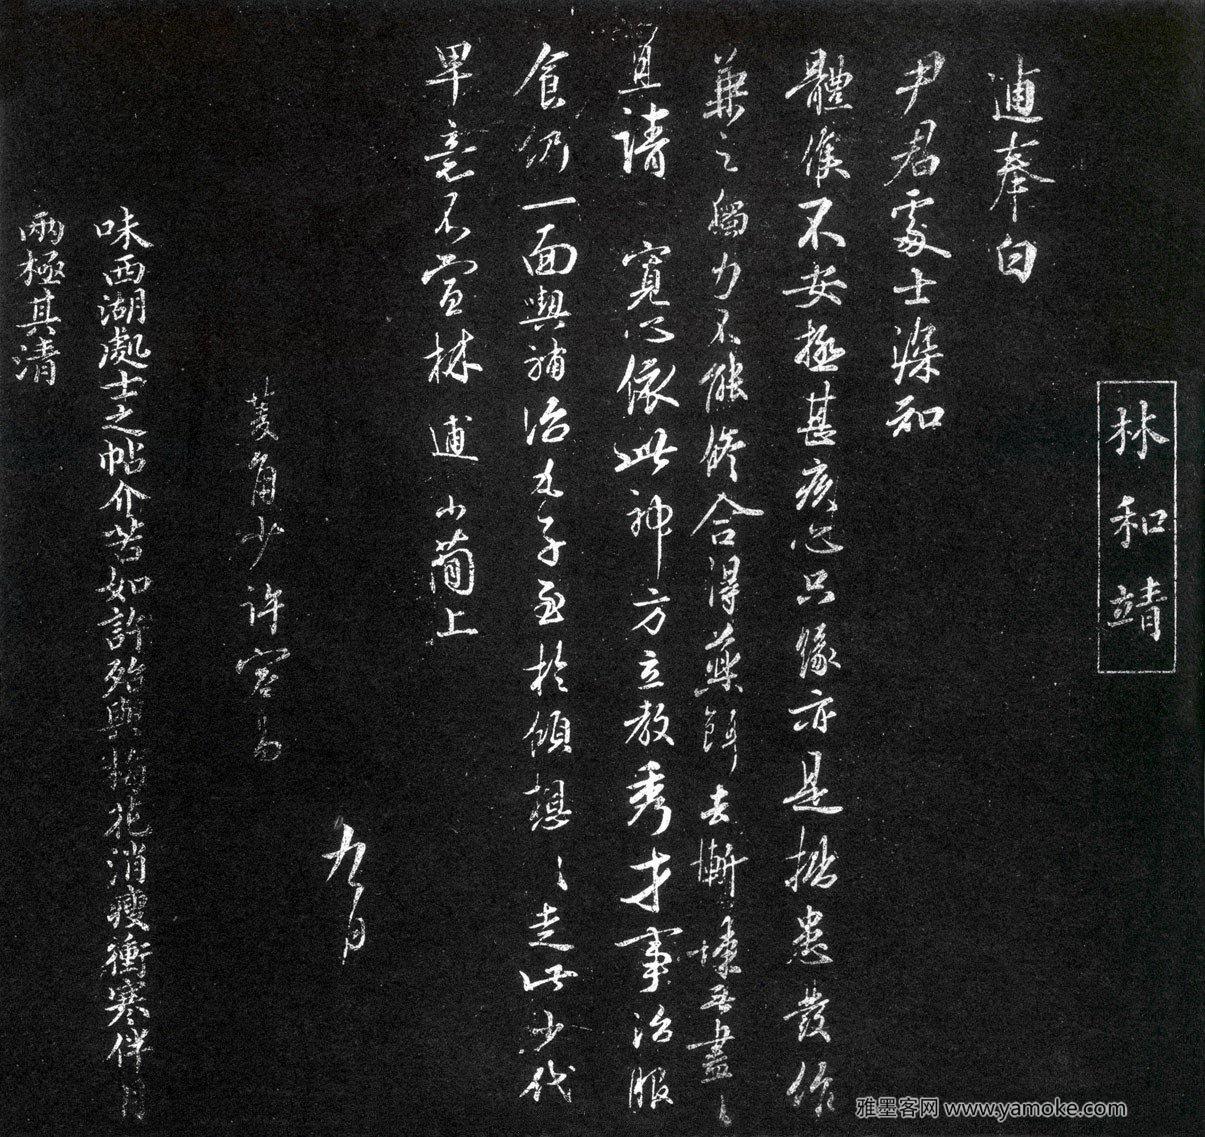 林和靖
逋奉白
尹君處士深知
體候不安極甚疾心只緣亦是拙患發作
兼之獨力不能修合得藥餌去慚悚無盡
且請寬心依此神方立教秀才事治服
食仍一面與補治丸子至於傾想〻走此少代
早亳不宣林逋小簡上
九月
菱角少許容易
味西湖處士之帖介苦如許殆與梅花消瘦衝寒伴月
兩極其清
雅墨客网 www.yamoke.com